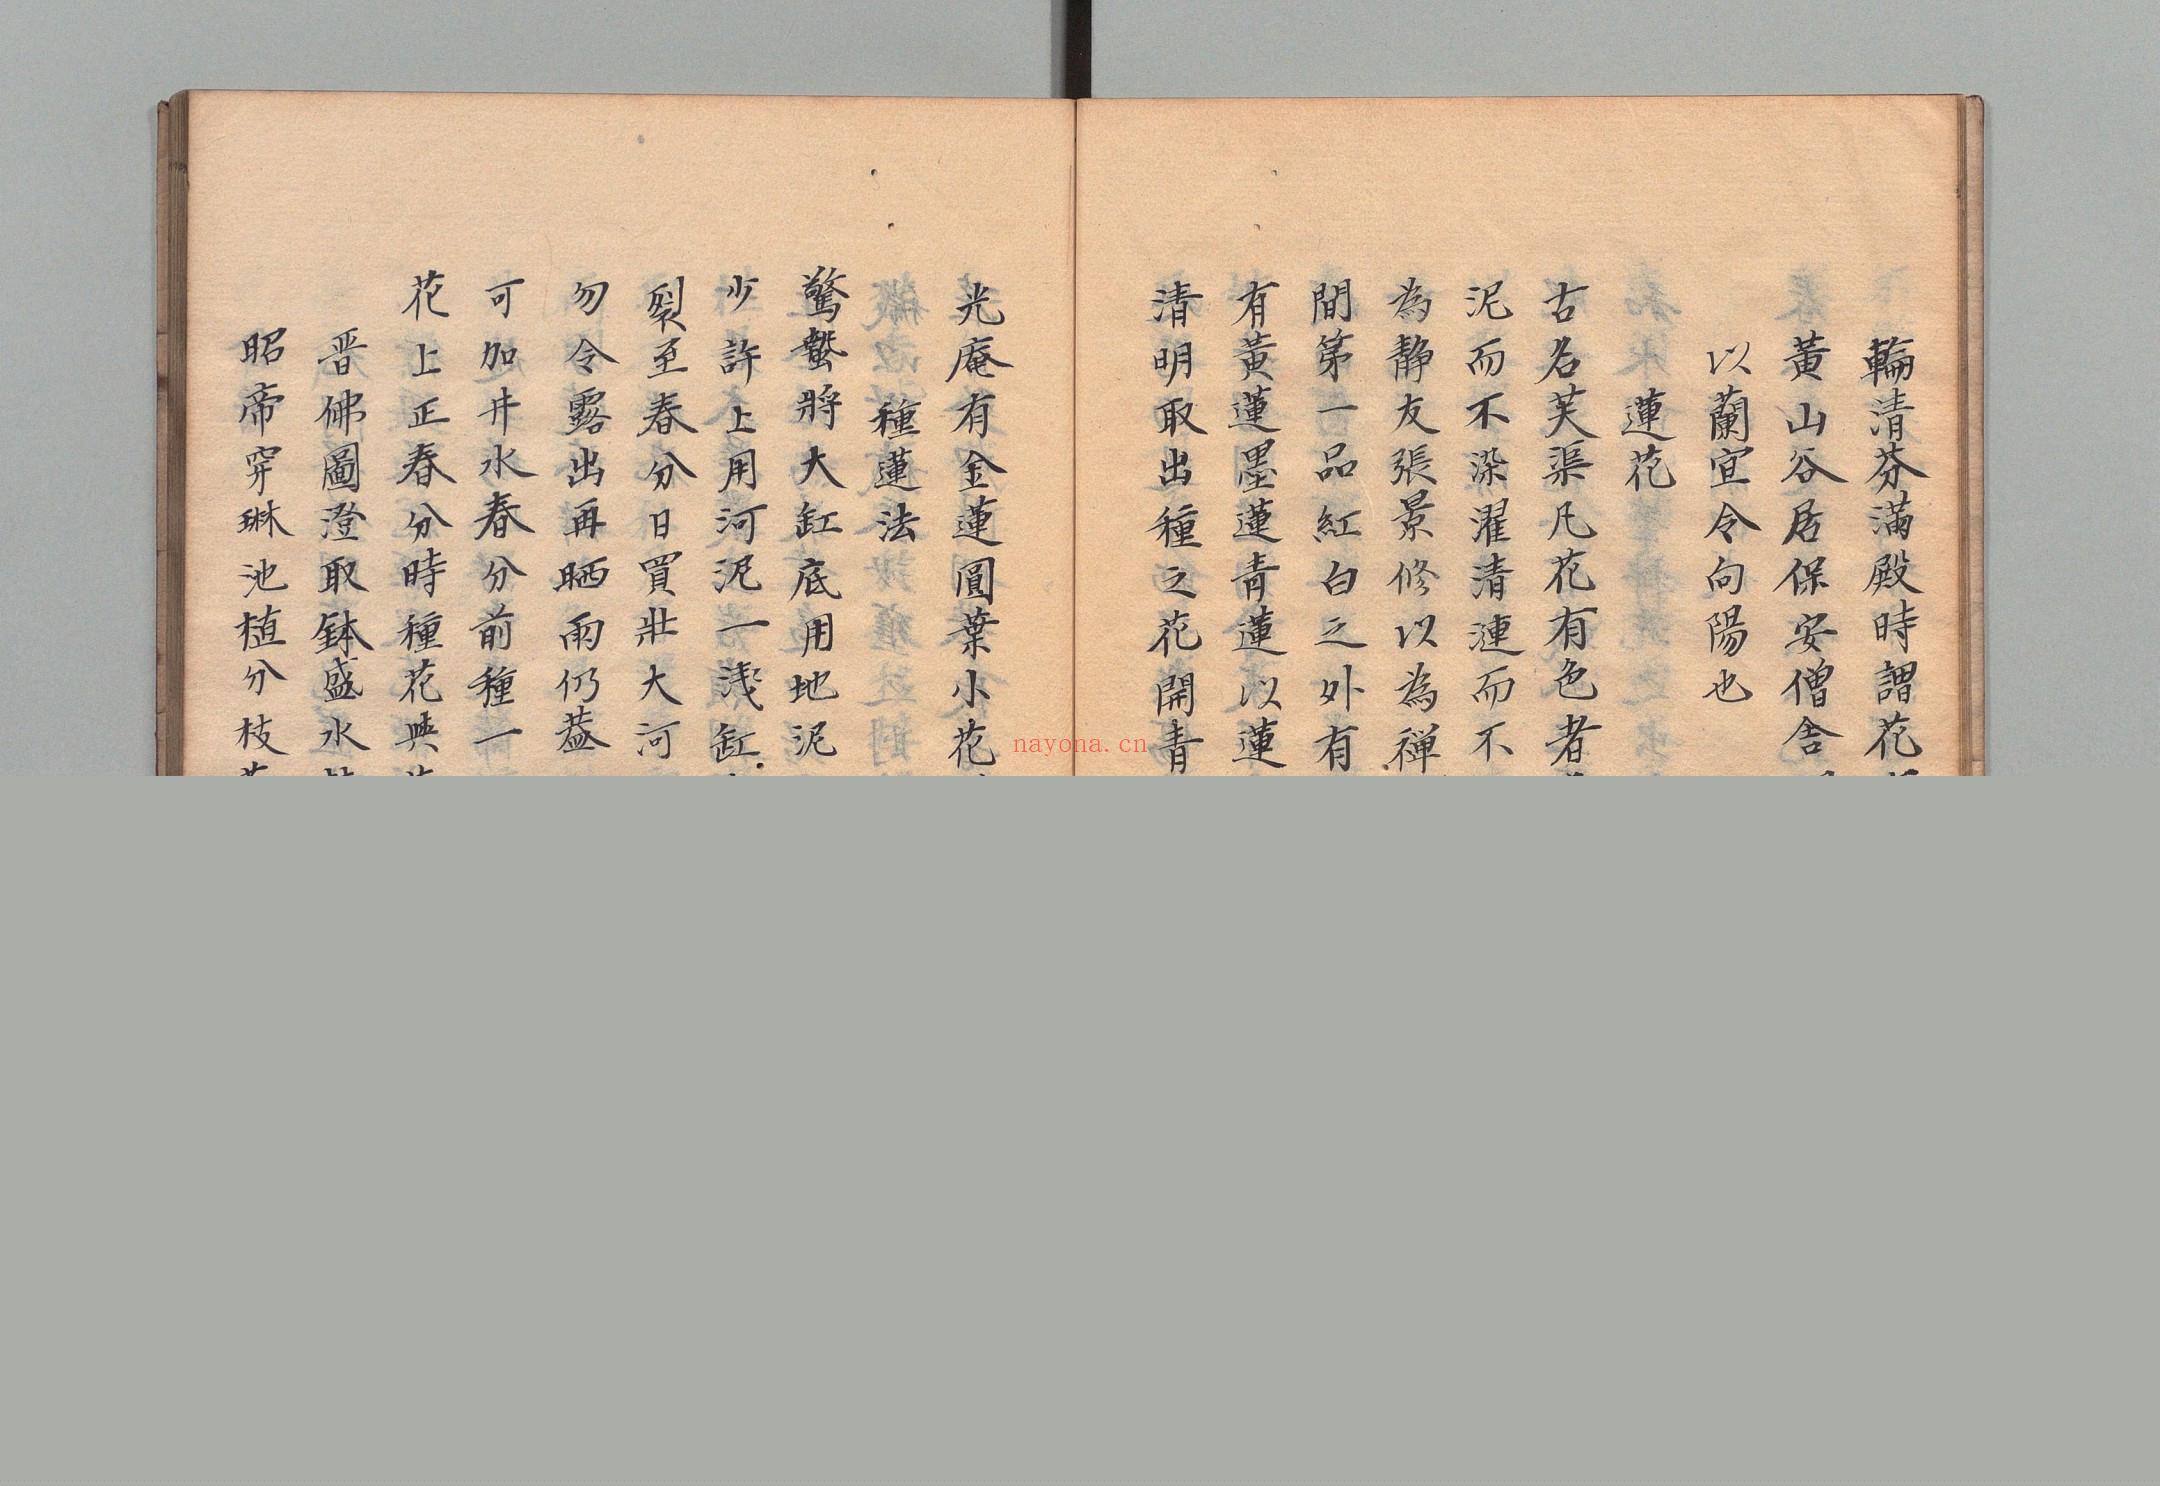 輪清芬滿殿時謂花
黃山谷居保安僧舍
以蘭宜令向陽也
蓮花
古名芙渠凡花有色者
泥而不染濯清漣而不
為靜友張景修以為禪
間第一品紅白之外有
有黃蓮墨蓮青蓮以蓮
清明取出種之花開青
光庵有金蓮圓葉小花
種蓮法
驚蟄將大缸底用地泥
少許上用河泥一淺缸
裂至春分日買壯大河
勿令露出再晒雨仍蓋
可加井水春分前種一
花上正春分時種花與
晉佛圖澄取鉢盛水
昭帝穿琳池植分枝
nayona.cn